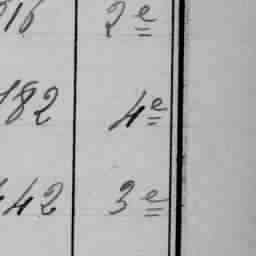 16 2e
182 4e
42 3e